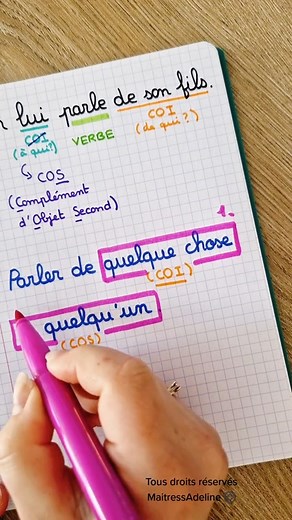 lui parle de son fils.
COI VERBE COI
(à qui?) (de qui?)
↳ COS
(Complément
d'Objet Second)
1.
Parler de quelque chose
(COI)
quelqu'un
(COS)
Tous droits réservés
MaitressAdeline